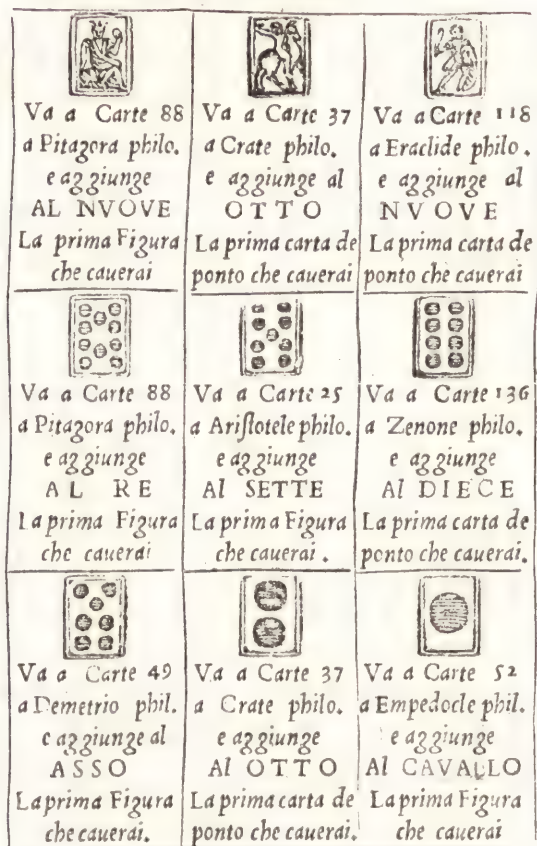 Va a Carte 88
a Pitagora philo.
e aggiunge
AL NVOVE
La prima Figura
che cauerai
Va a Carte 37
a Crate philo.
e aggiunge al
OTTO
La prima carta de
ponto che cauerai
Va a Carte 118
a Eraclide philo.
e aggiunge al
NVOVE
La prima carta de
ponto che cauerai
Va a Carte 88
a Pitagora philo.
e aggiunge
AL RE
La prima Figura
che cauerai
Va a Carte 25
a Ariſtotele philo.
e aggiunge
Al SETTE
La prima Figura
che cauerai.
Va a Carte 136
a Zenone philo.
e aggiunge
Al DIECE
La prima carta de
ponto che cauerai.
Va a Carte 49
a Demetrio phil.
e aggiunge al
ASSO
La prima Figura
che cauerai.
Va a Carte 37
a Crate philo.
e aggiunge
Al OTTO
La prima carta de
ponto che cauerai.
Va a Carte 52
a Empedocle phil.
e aggiunge
Al CAVALLO
La prima Figura
che cauerai